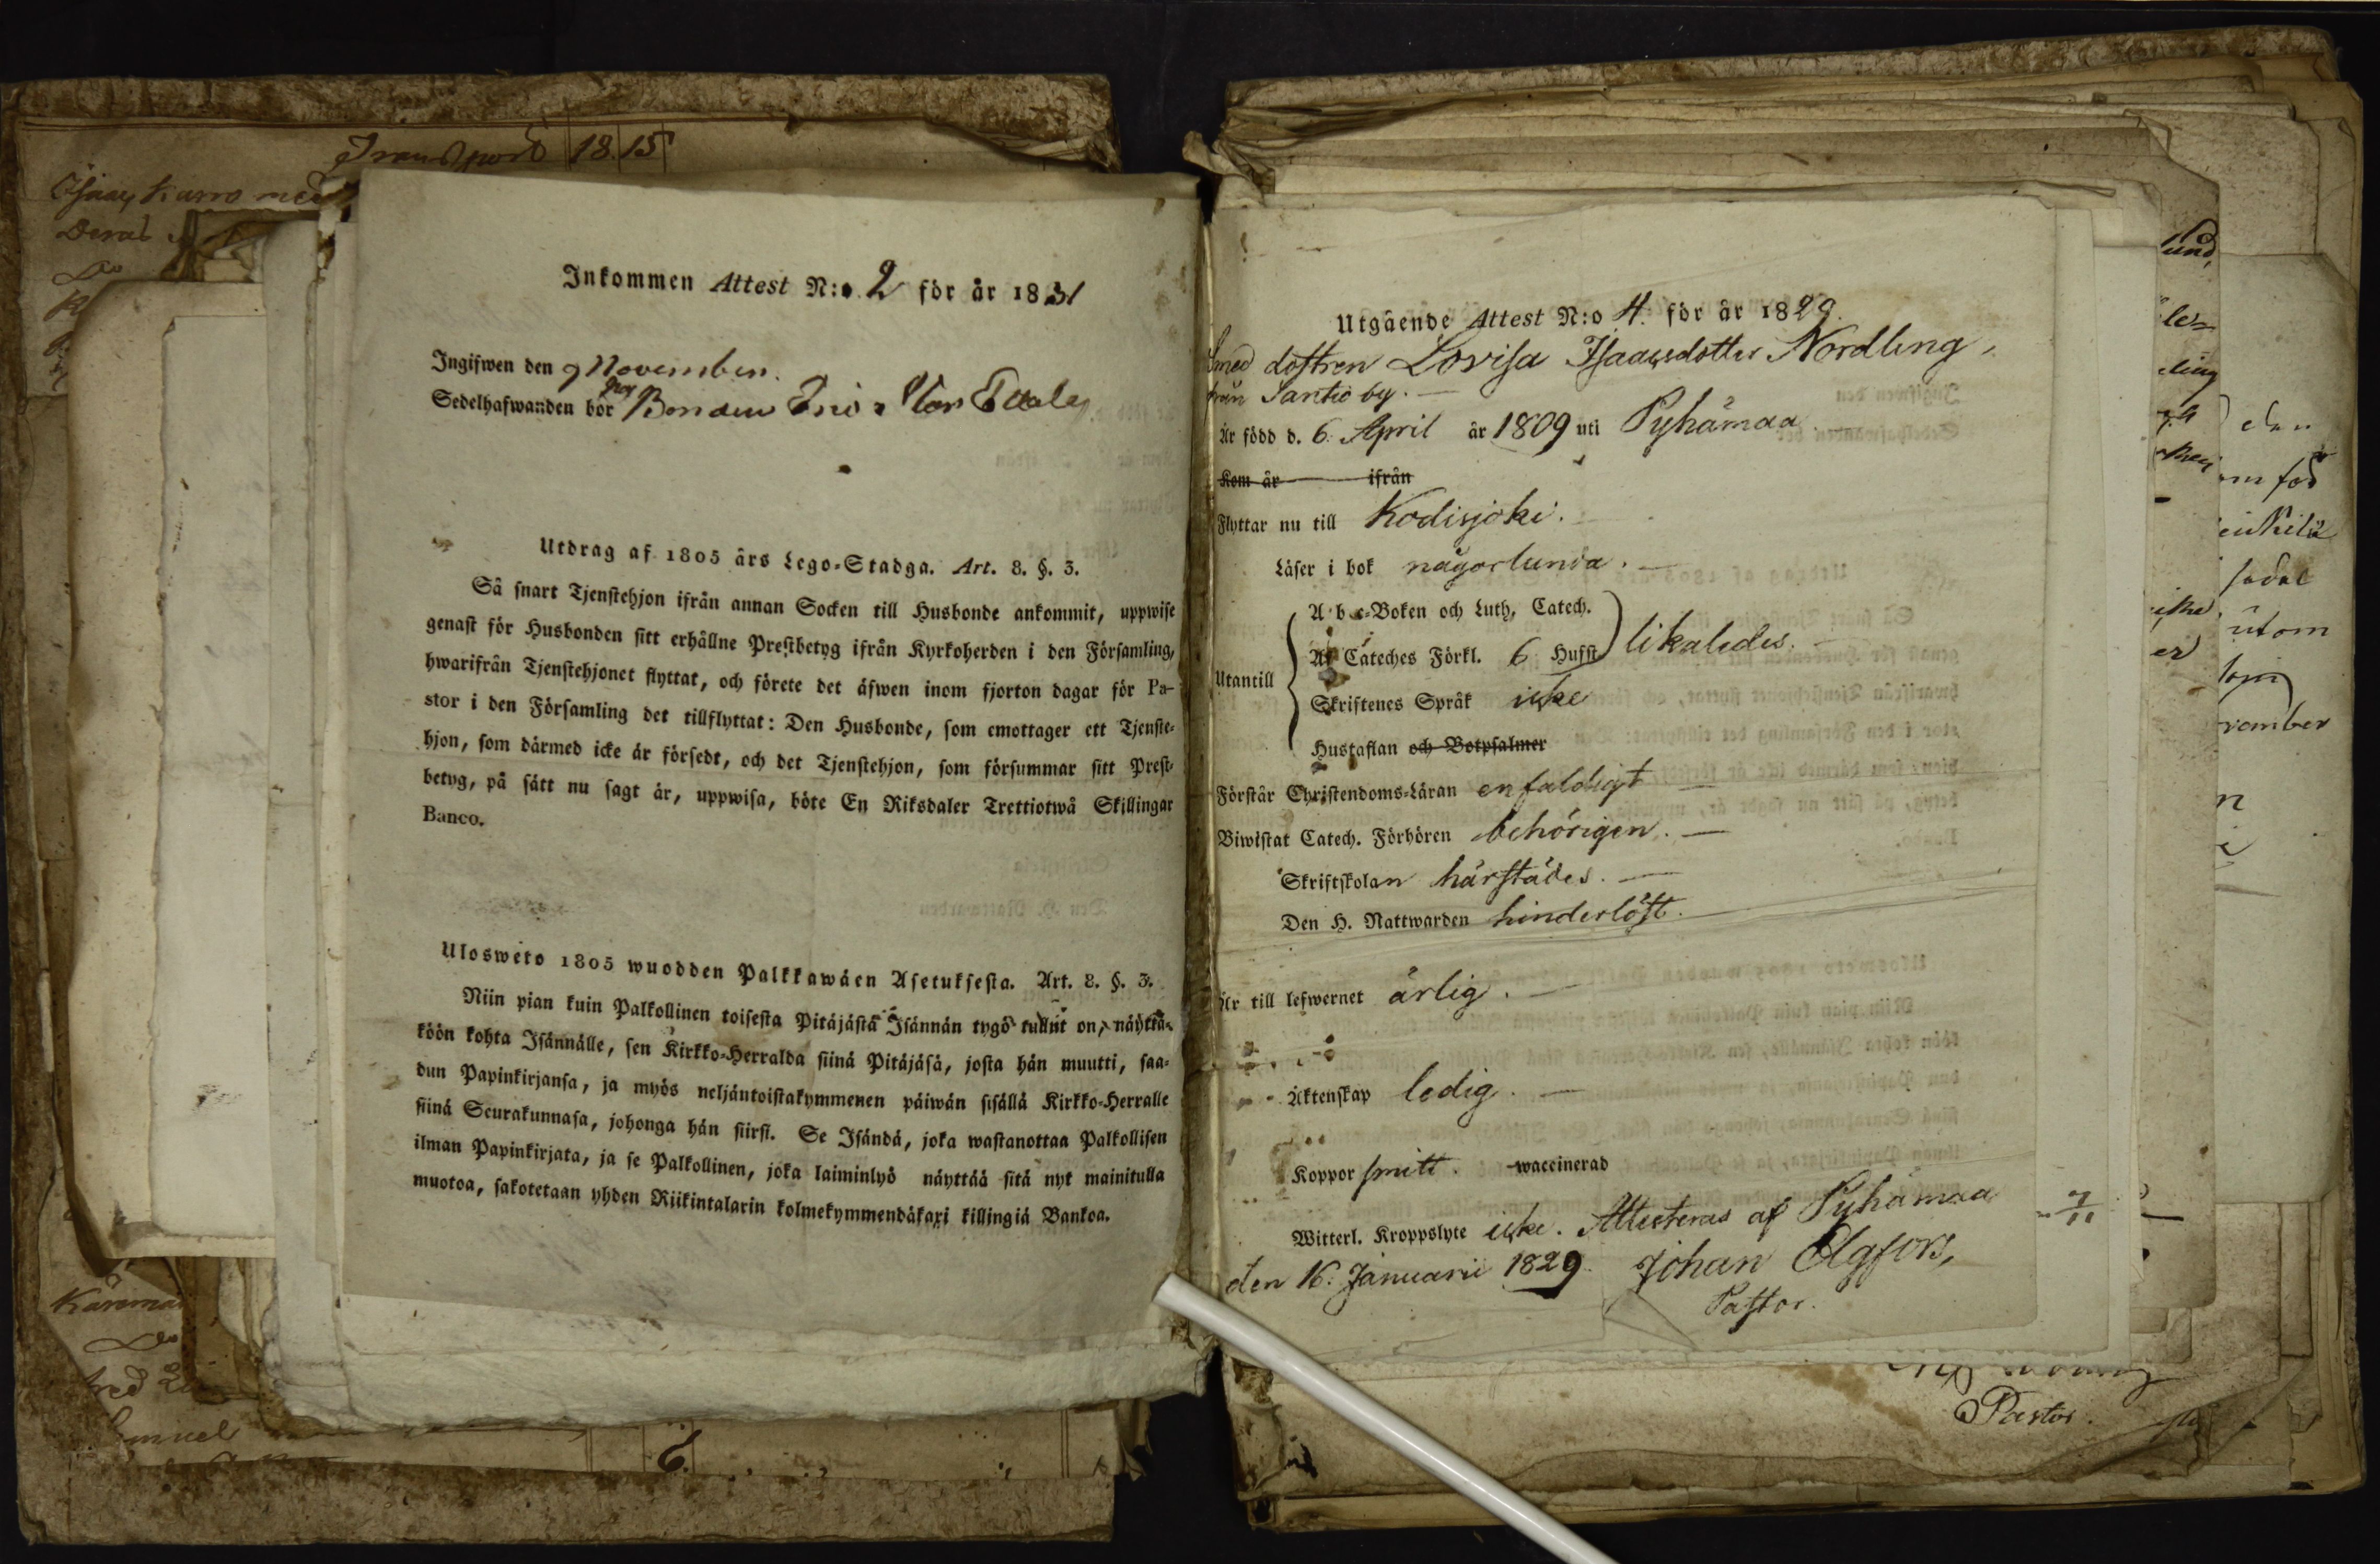 Transport 18.15
Isaac Karro med
Derat
Inkommen Attest N:o 2 för år 1831
Ingifwen den 9 November.
Sedelhafwanden bor hos Bonden
Utdrag af 1805 års Lego-Stadga. Art. 8. §. 3.
Så snart Tjenstehjon ifrån annan Socken till Husbonde ankommit, uppwise
genast för Husbonden sitt erhållne Prestbetyg ifrån Kyrkoherden i den Församling,
hwarifrån Tjenstehjonet flyttat, och förete det äfwen inom fjorton dagar för Pa-
stor i den Församling det tillflyttat: Den Husbonde, som emottager ett Tjenste-
hjon, som därmed icke är försedt, och det Tjenstehjon, som försummar sitt Prest-
betyg, på sätt nu sagt är, uppwisa, böte En Riksdaler Trettiotwå Skillingar
Banco.
Uloswéto 1805 wuodden Palkkawäen Asetuksesta. Art. 8. §. 3.
Niin pian kuin Palkollinen toisesta Pitäjästä Isännän tygö tullut on, näyttä-
köön kohta Isännälle, sen Kirkko-Herralda siinä Pitäjäsä, josta hän muutti, saa-
dun Papinkirjansa, ja myös neljäntoistakymmenen päiwän sisällä Kirkko-Herralle
siinä Seurakunnasa, johonga hän siirsi. Se Isändä, joka wastanottaa Palkollisen
ilman Papinkirjata, ja se Palkollinen, joka laiminlyö näyttää sitä nyt mainitulla
muotoa, sakotetaan yhden Riikintalarin kolmekymmendäkaxi killingiä Bankoa.
6.
Utgående Attest N:o 4. för år 1829.
Smed dottren Lovisa Isaacsdotter Nordling,
från Santio by.
Är född d. 6. April år 1809 uti Pyhämaa
Kom år ifrån
Flyttar nu till Kodisjoki.
Läser i bok någorlunda.
Utantill
A b c-Boken och Luth. Catech.
Af Cateches Förkl. 6 Hufst likaledes.
Skriftenes Språk icke
Hustaflan och Botpsalmer
Förstår Christendoms-Läran enfaldigt
Biwistat Catech. Förhören behörigen.
Skriftskolan härstädes.
Den H. Nattwarden hinderlöst.
Är till lefwernet ärlig.
Äktenskap ledig.
Koppor smitt. waccinerad
Witterl. Kroppslyte icke. Attesteras af Pyhämaa
den 16. Januarii 1829. Johan Elgfors,
Pastor.
Pastor.